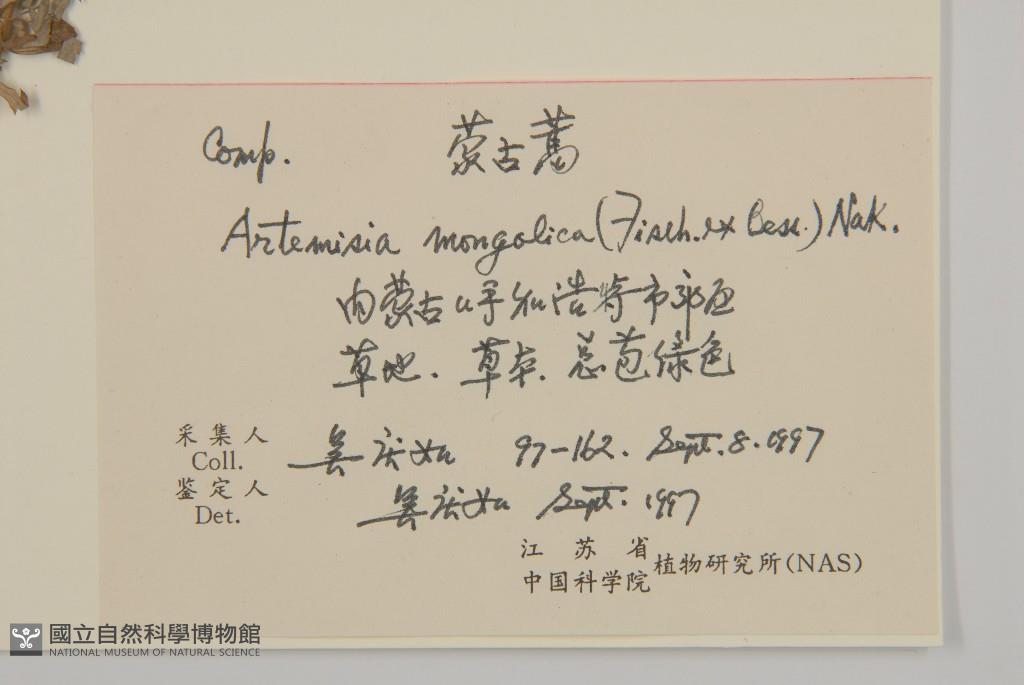 Comp. 蒙古蒿
Artemisia mongolica (Fisch. ex Bess.) Nak.
内蒙古呼和浩特市郊区
草地. 草本. 总苞绿色
采集人 吴庆如 97-162. Sept. 8. 1997
Coll.
鉴定人 吴庆如 Sept. 1997
Det.
江苏省
中国科学院 植物研究所(NAS)
國立自然科學博物館
NATIONAL MUSEUM OF NATURAL SCIENCE